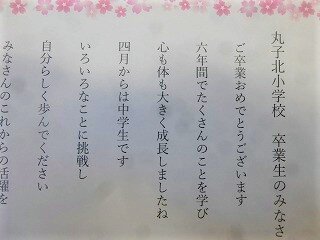 丸子北小学校　卒業生のみなさ
ご卒業おめでとうございます
六年間でたくさんのことを学び
心も体も大きく成長しましたね
四月からは中学生です
いろいろなことに挑戦し
自分らしく歩んでください
みなさんのこれからの活躍を